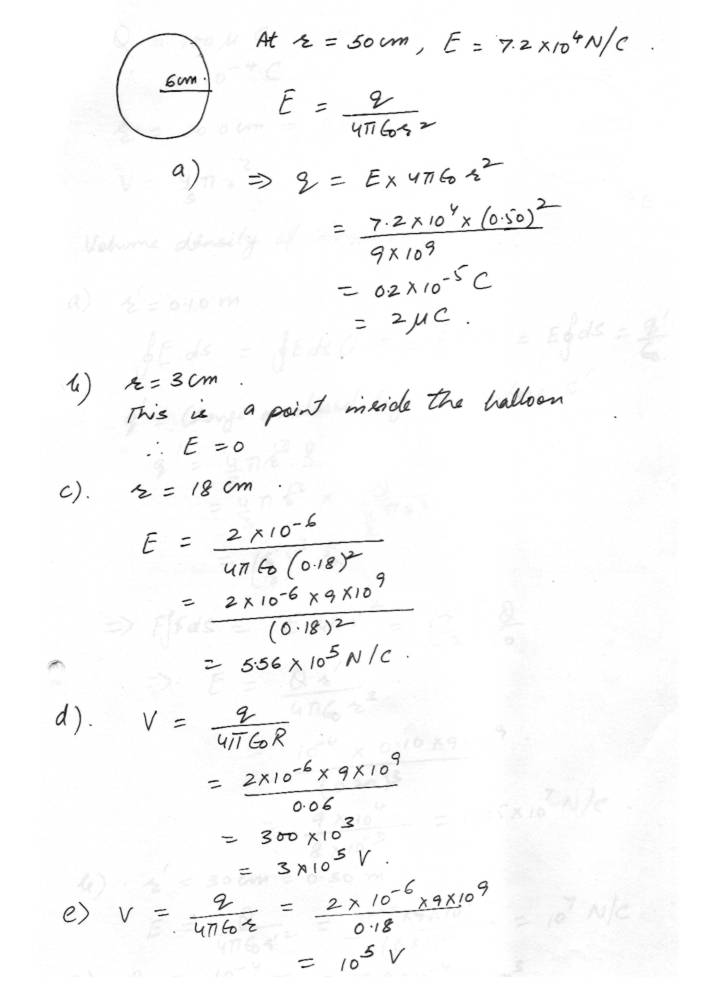 At r = 50cm, E = 7.2 × 10⁴ N/C .
6cm.
E = q / 4π∈₀r²
a) ⇒ q = E × 4π∈₀ r²
= 7.2 × 10⁴ × (0.50)² / 9 × 10⁹
= 0.2 × 10⁻⁵ C
= 2 μC .
b) r = 3 cm .
This is a point inside the balloon
∴ E = 0
c). r = 18 cm .
E = 2 × 10⁻⁶ / 4π∈₀ (0.18)²
= 2 × 10⁻⁶ × 9 × 10⁹ / (0.18)²
= 5.56 × 10⁵ N/C .
d). V = q / 4π∈₀R
= 2×10⁻⁶ × 9×10⁹ / 0.06
= 300 × 10³
= 3 × 10⁵ V .
e) V = q / 4π∈₀r = 2 × 10⁻⁶ × 9×10⁹ / 0.18
= 10⁵ V